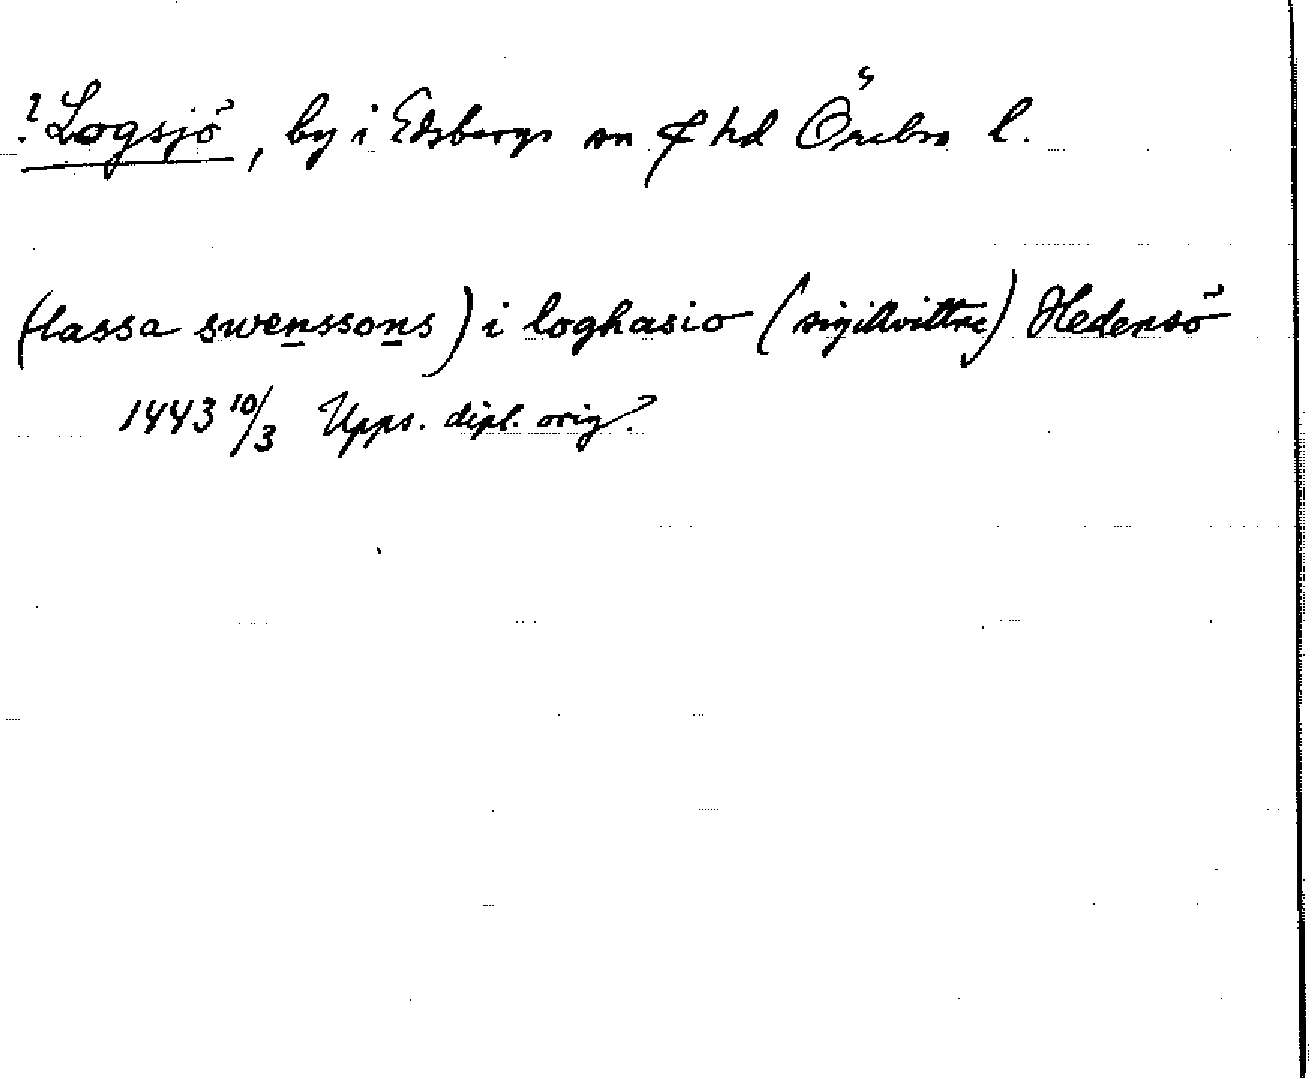 ? Logsjö, by i Edsbergs sn ꝭ hd Örebro l.
(lassa swenssons) i loghasio (sigillvittne) Hedensö
1443 10/3 Upps. dipl. orig?